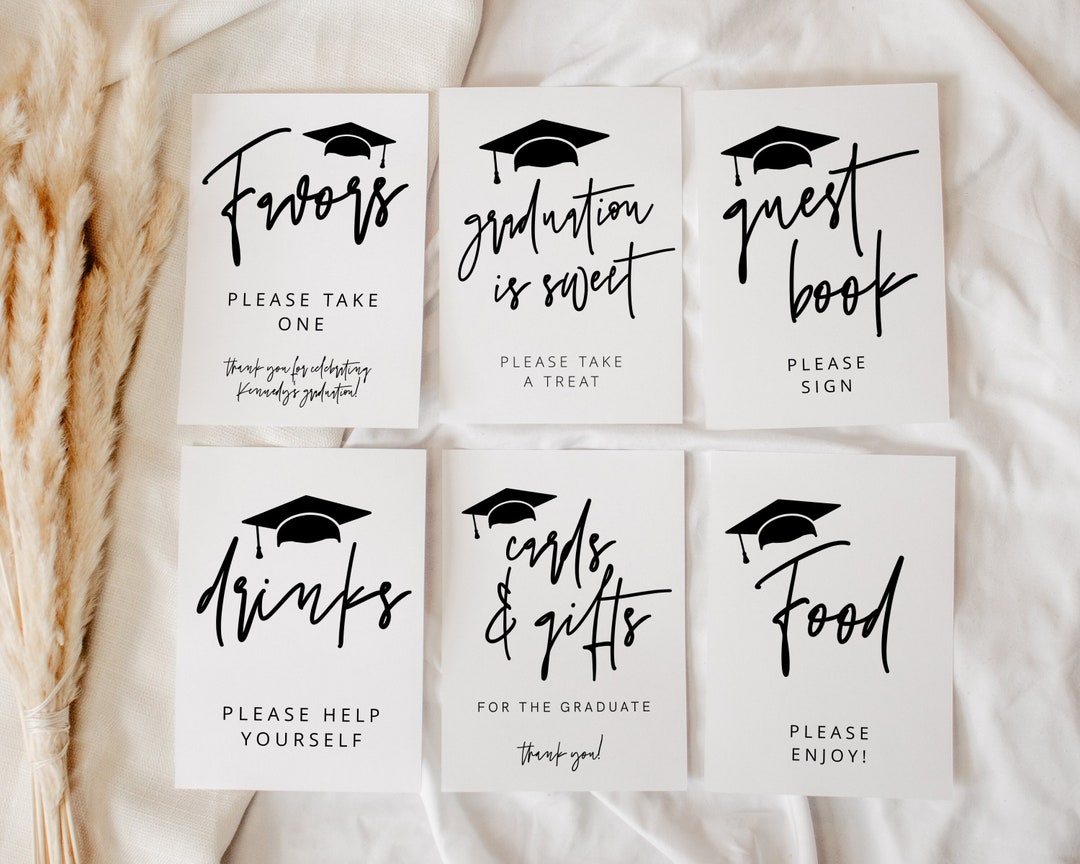 Favors
PLEASE TAKE
ONE
thank you for celebrating
Kennedy's graduation!
graduation
is sweet
PLEASE TAKE
A TREAT
guest
book
PLEASE
SIGN
drinks
PLEASE HELP
YOURSELF
cards
& gifts
FOR THE GRADUATE
thank you!
Food
PLEASE
ENJOY!